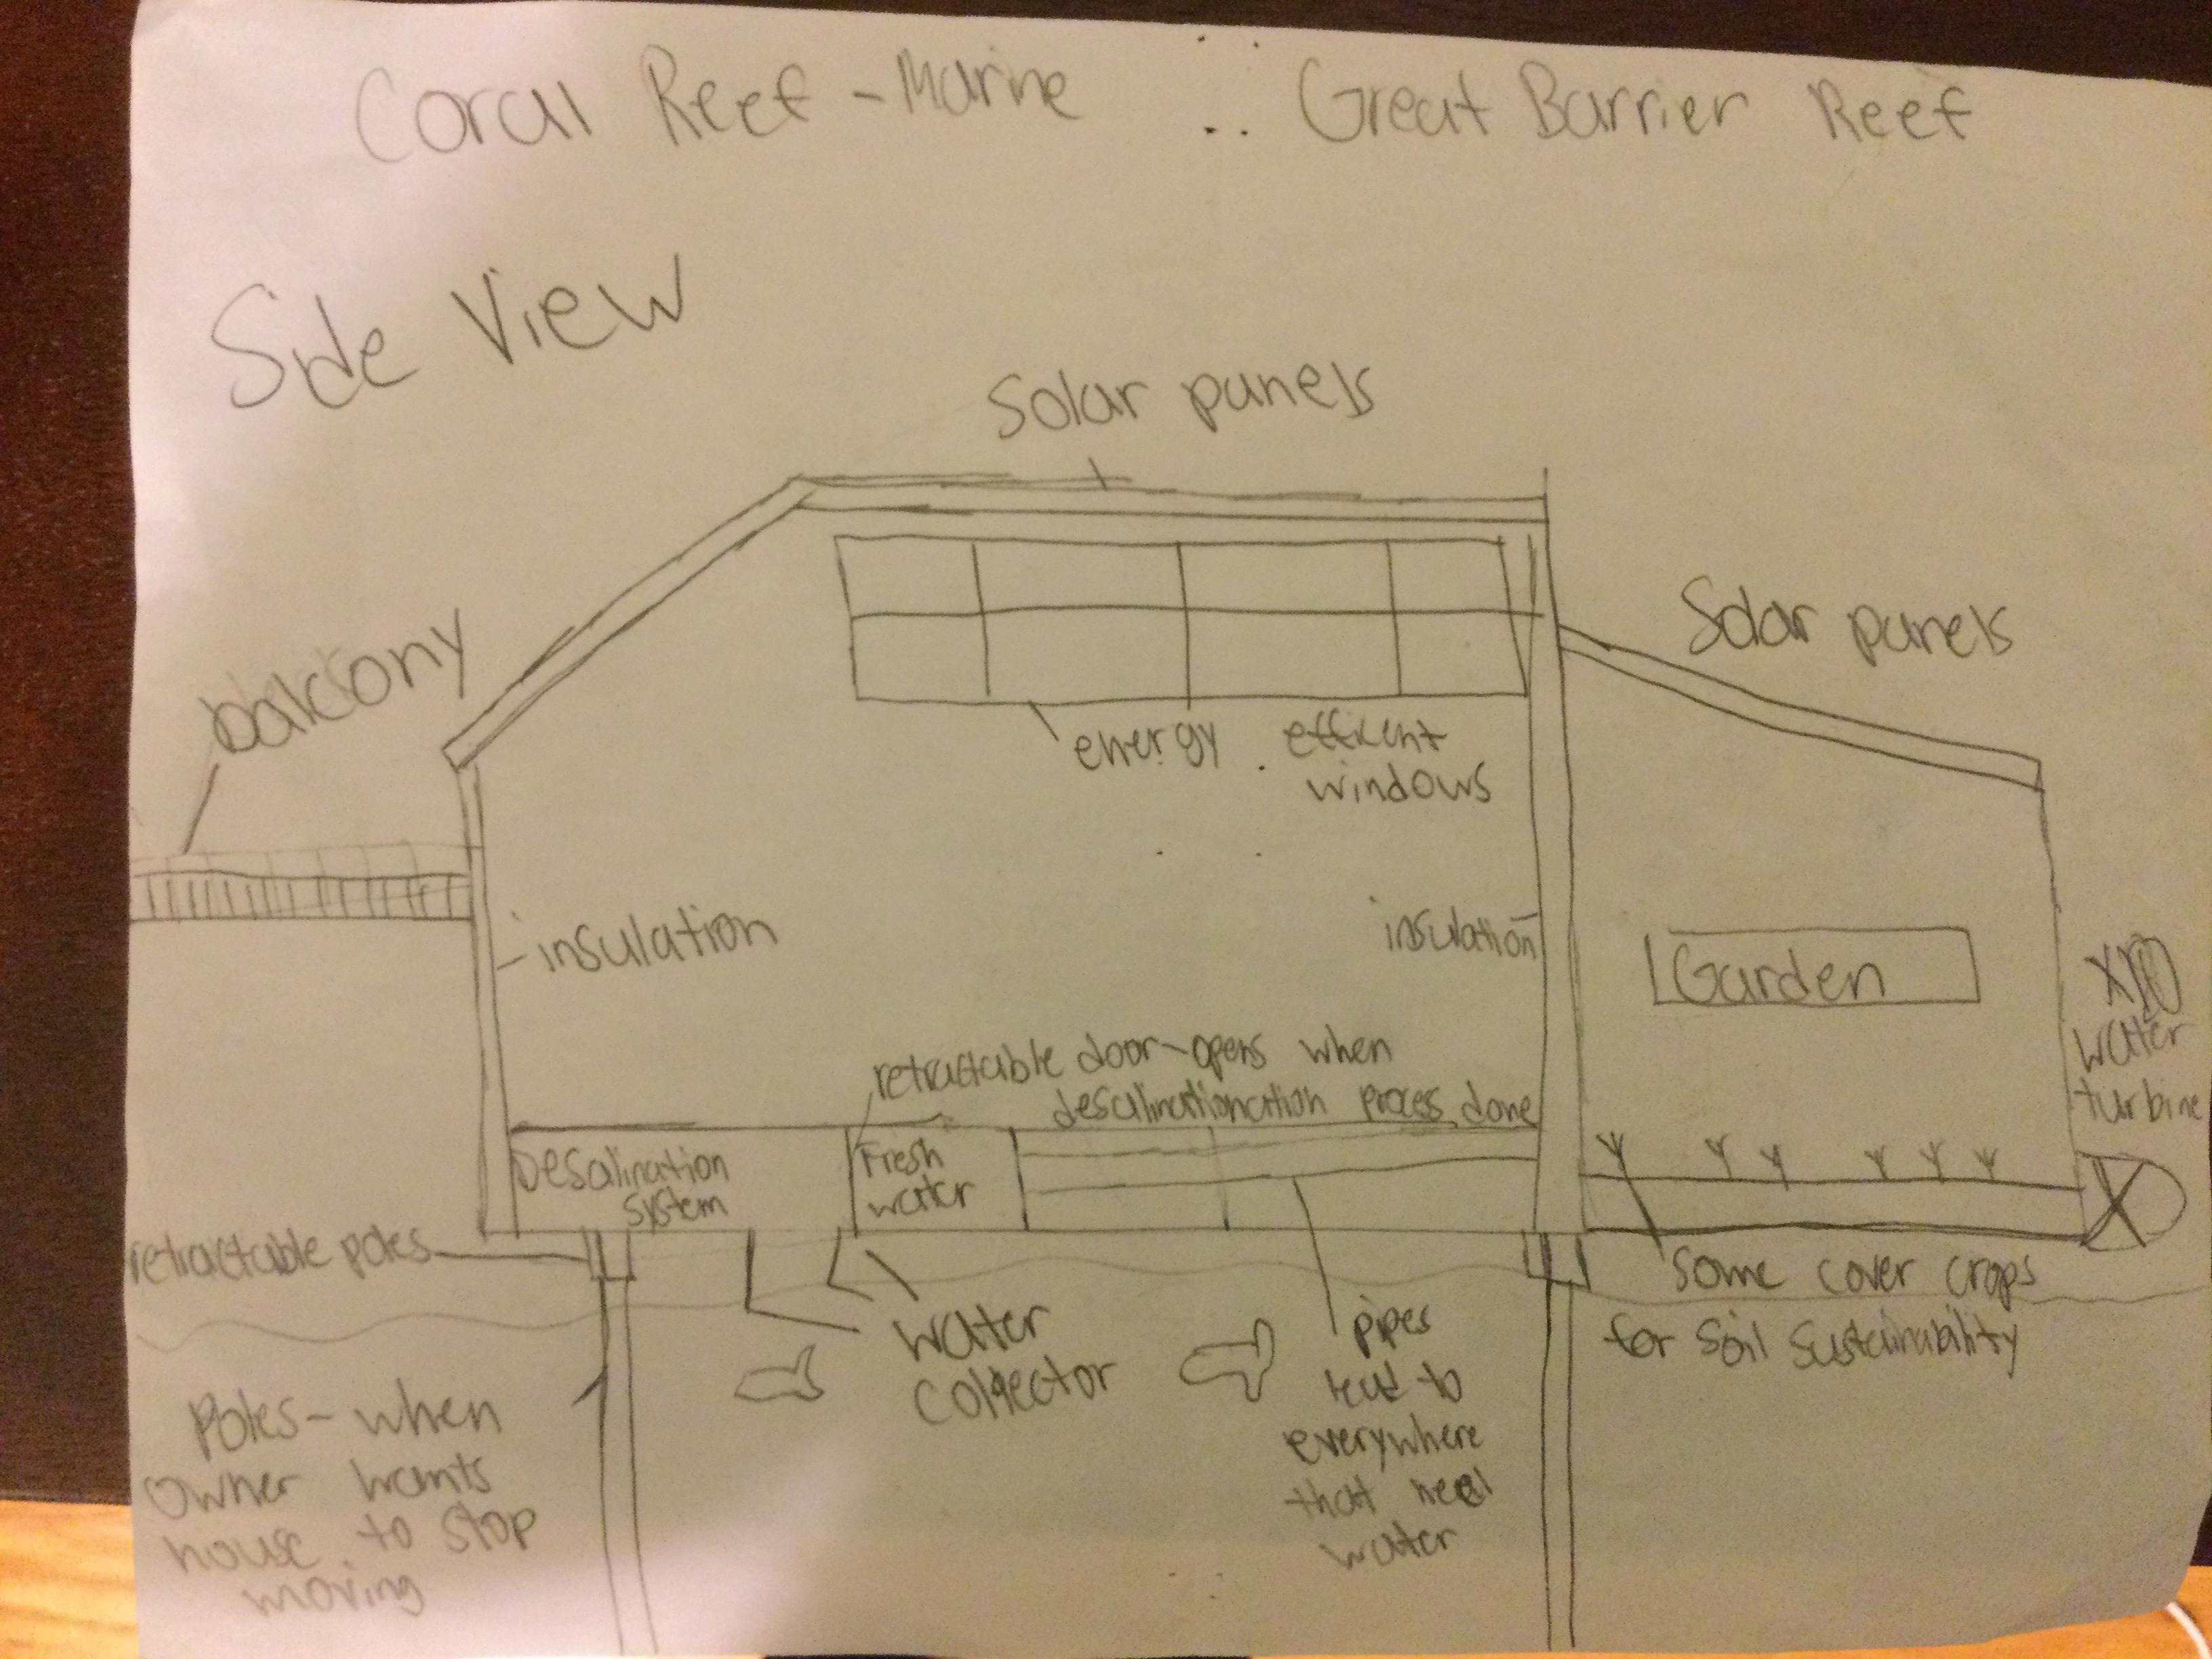 Coral Reef - Marine
Great Barrier Reef
Side View
Solar panels
Solar panels
balcony
energy efficent
windows
insulation
insulation
Garden
water
turbine
retractable door - opens when
desalinationation process done
Desalination
system
Fresh
water
retractable poles
some cover crops
for soil sustainability
water
collector
pipes
lead to
everywhere
that need
water
Poles - when
owner wants
house to stop
moving